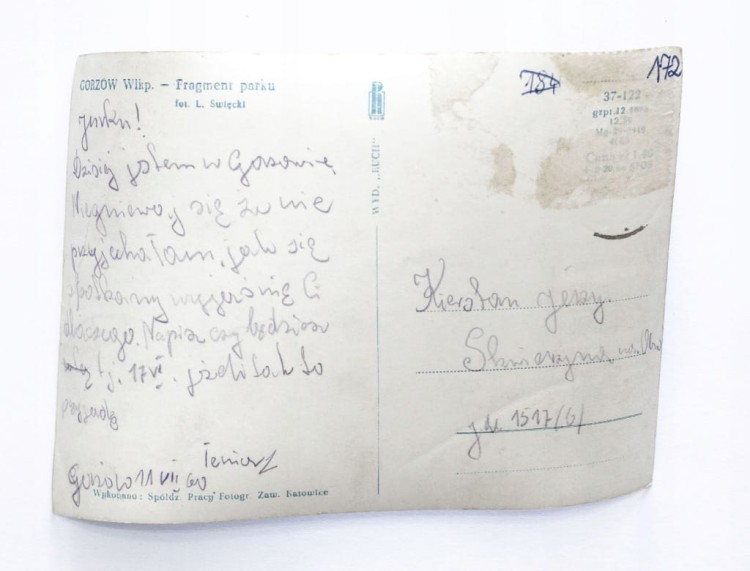 GORZÓW Wlkp. — Fragment parku
fot. L. Święcki
Jurku!
Dzisiaj jestem w Gorzowie
Niegniewaj się że nie
przyjechałam, jak się
spotkamy wyjaśnię Ci
dlaczego. Napisz czy będziesz
tj. 17 VII. jeżeli tak to
przyjadę
Gorzów 11 VII 60
Wykonano: Spółdz. Pracy Fotogr. Zaw. Katowice
WYD. „RUCH"
184
172
37-122
Kierstan Jerzy
Skwierzyna
1517/6/